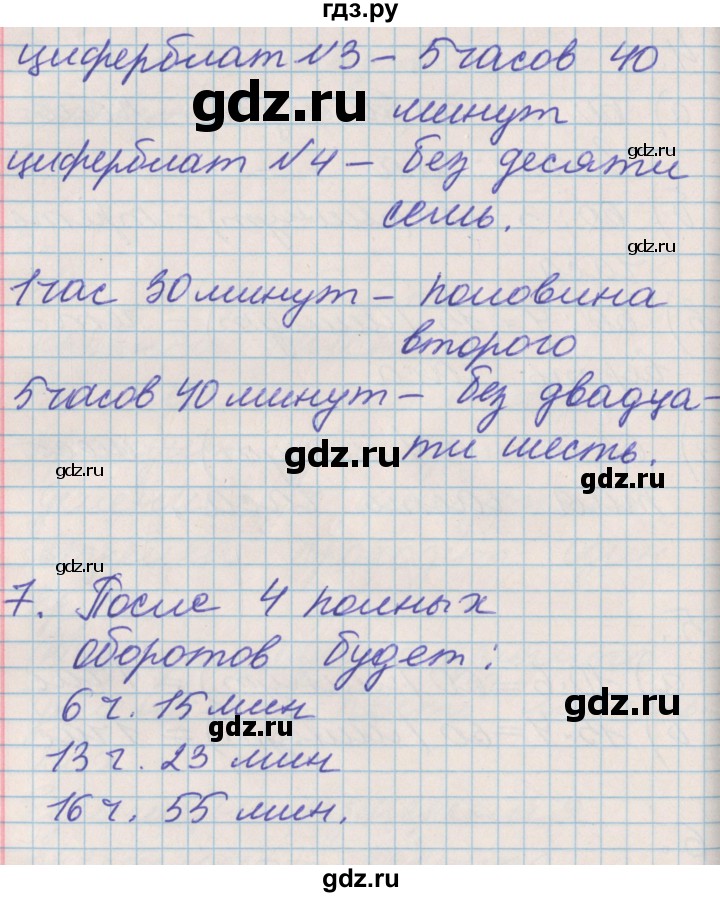 гдз.ру
циферблат N3 – 5 часов 40
gdz.ru
минут
gdz.ru
циферблат N4 – без десяти
семь.
gdz.ru
1 час 30 минут – половина
второго
5 часов 40 минут – без двадца-
ти шесть.
gdz.ru
gdz.ru
gdz.ru
gdz.ru
7. После 4 полных
оборотов будет:
6 ч. 15 мин
gdz.ru
gdz.ru
13 г. 23 мин
16 ч. 55 мин.
gdz.ru